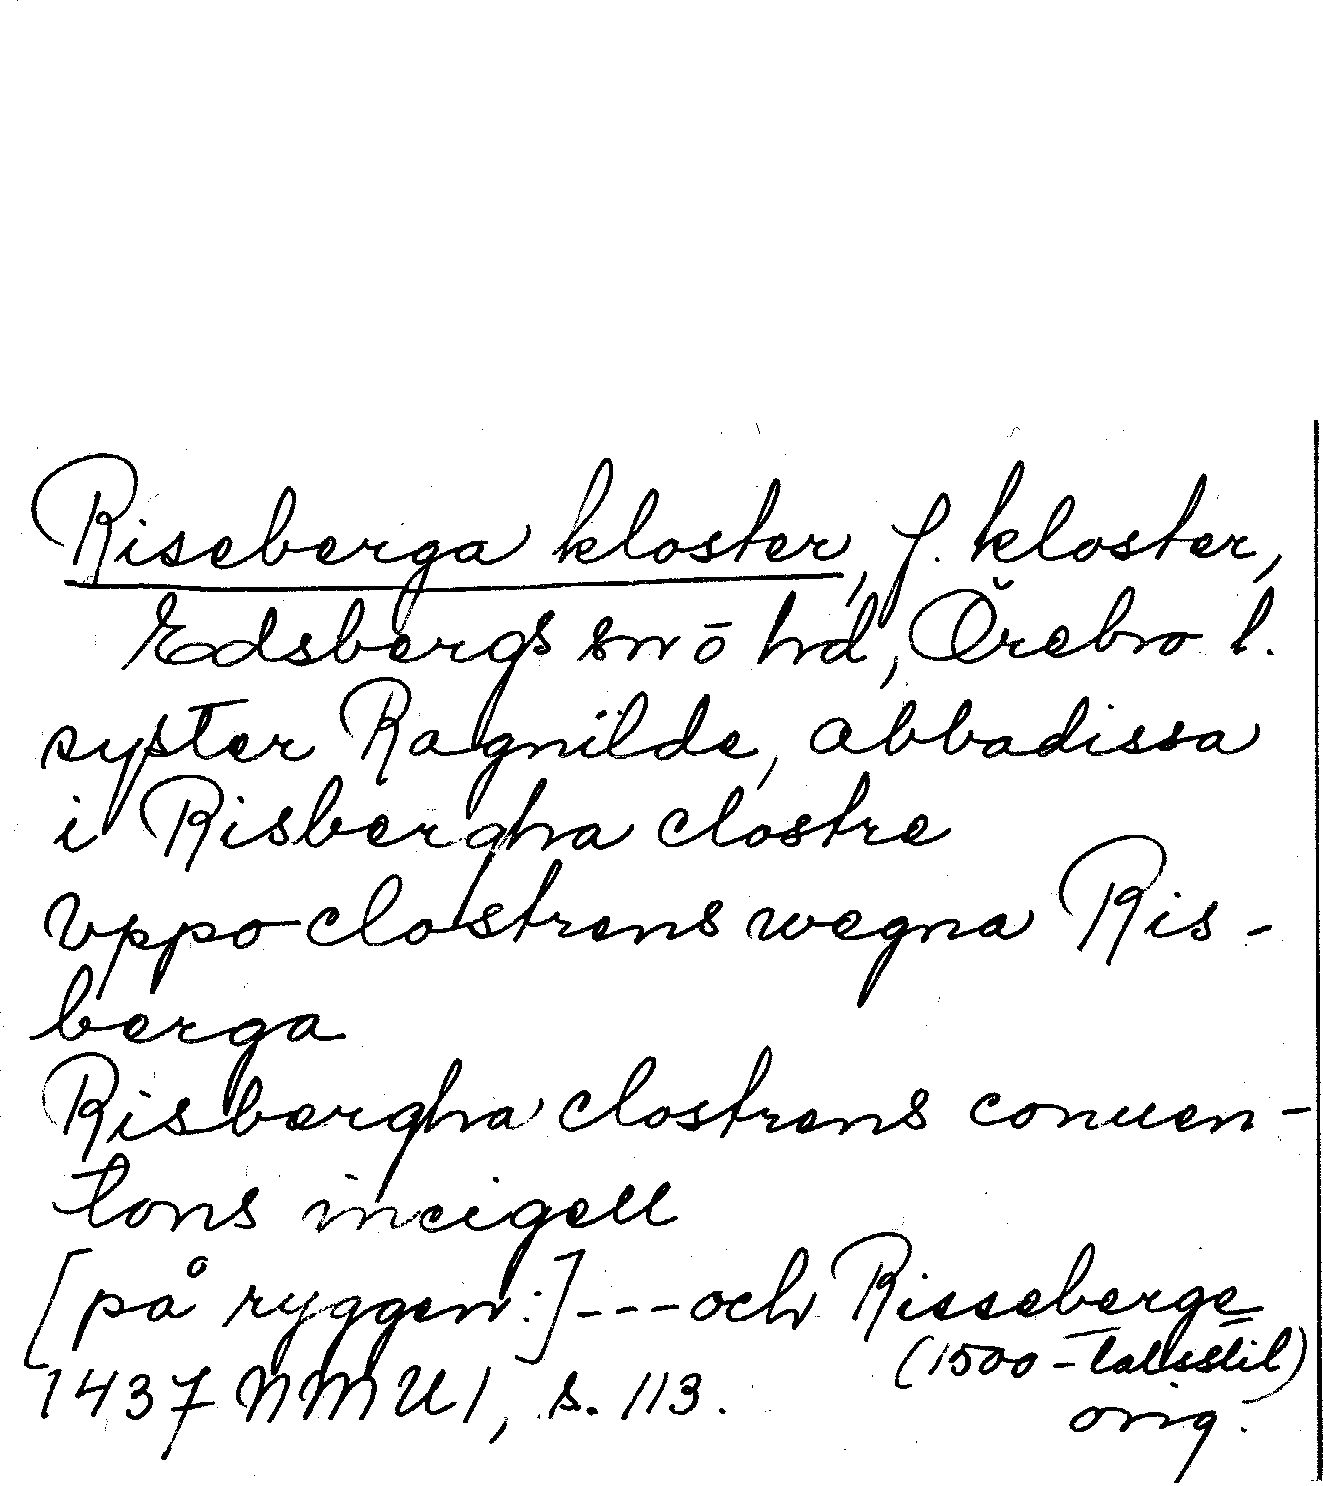 Riseberga kloster, f. kloster,
Edsbergs sn ö hd, Örebro l.
syster Ragnilde, abbadissa
i Risbergha clostre
Vppo clostrens wegna Ris-
berga
Risbergha clostrens conuen-
tons incigell
[på ryggen:] --- och Risseberge
(1500-talsstil)
1437 NMU 1, s. 113.
orig.